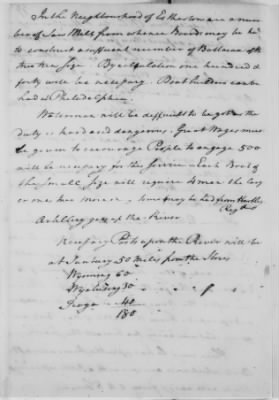 In the Neighbourhood of Estherton are a num
ber of Saw Mills from whence Boards may be had
to construct a sufficient number of Batteaux of the
two size. By calculation one hundred &
forty will be necessary. Boat builders can be
had in Philadelphia.
Watermen will be difficult to be got as the
duty is hard and dangerous. Great Wages must
be given to encourage People to engage 500
will be necessary for this service as Each Boat of
the Small Size will require 4 men the large
or ones two more. Some may be had from
Regts
Artillery go up the River
Necessary Posts upon the River will be
at Sunbury 50 Miles from the Stores
Wyoming 60
Wyalusing 30
Tioga 40
180